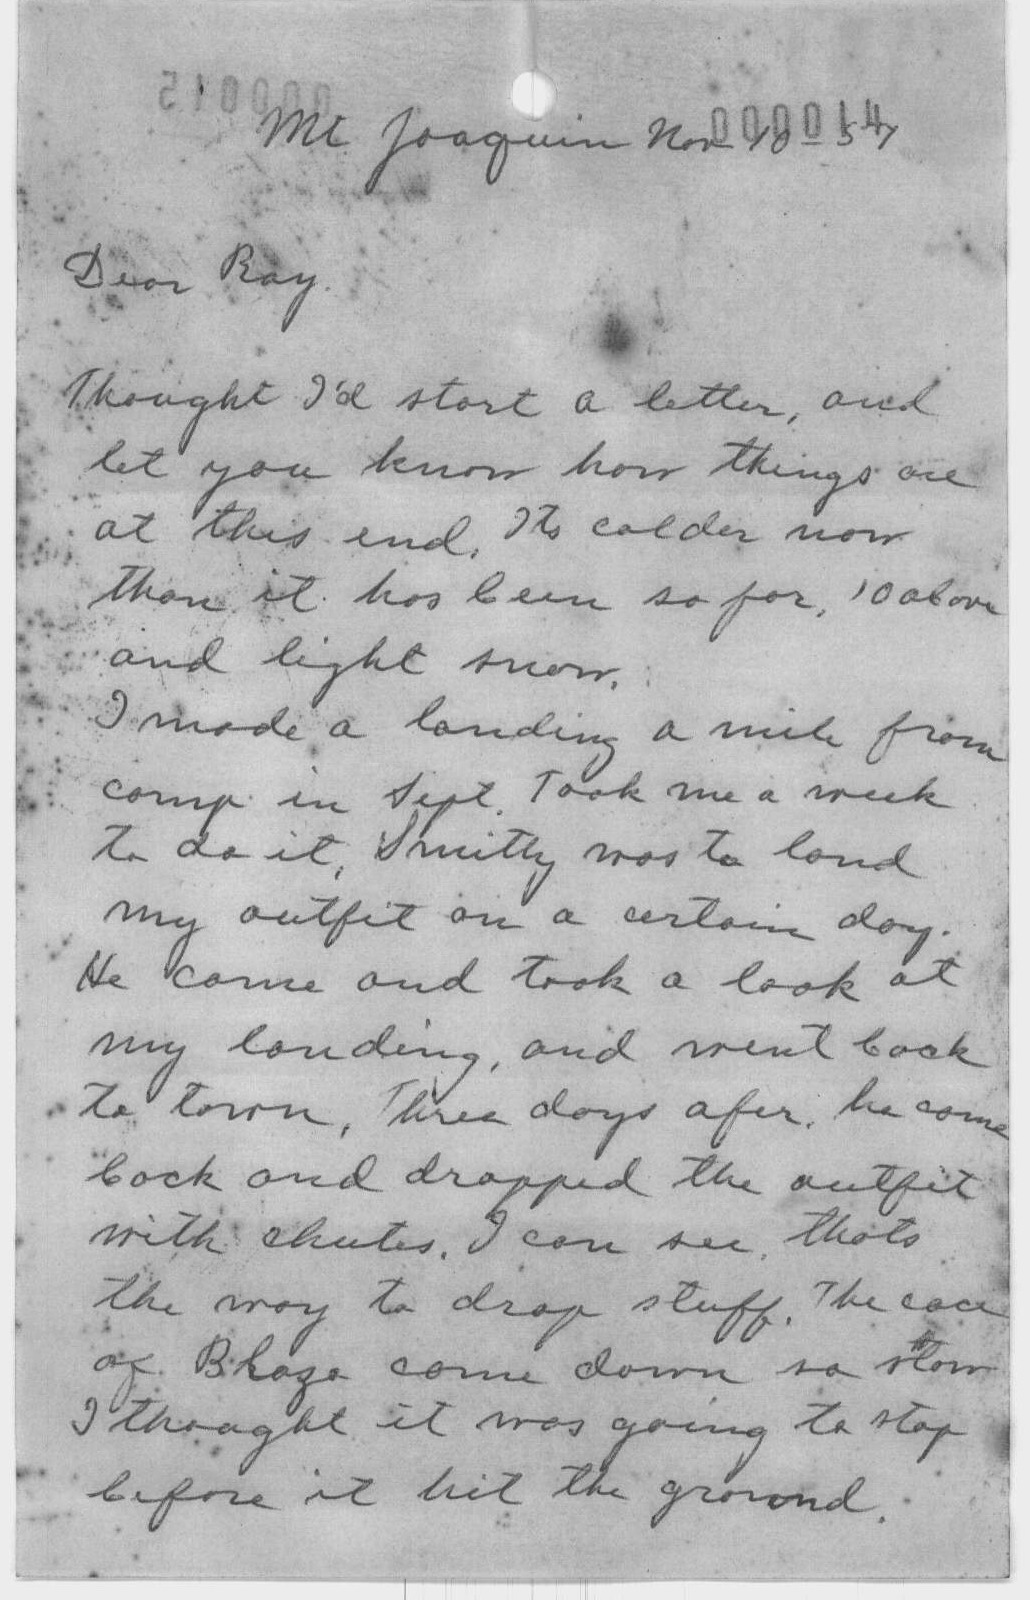 000015
000014
Mt Joaquin Nov 10 - 57
Dear Ray.
Thought I'd start a letter, and
let you know how things are
at this end. Its colder now
than it has been so far, 10 above
and light snow.
I made a landing a mile from
camp in Sept. Took me a week
to do it, Smitty was to land
my outfit on a certain day.
He came and took a look at
my landing, and went back
to town, Three days afer, he came
back and dropped the outfit
with chutes. I can see, thats
the way to drop stuff. The case
of Blazo come down so slow
I thought it was going to stop
before it hit the ground.